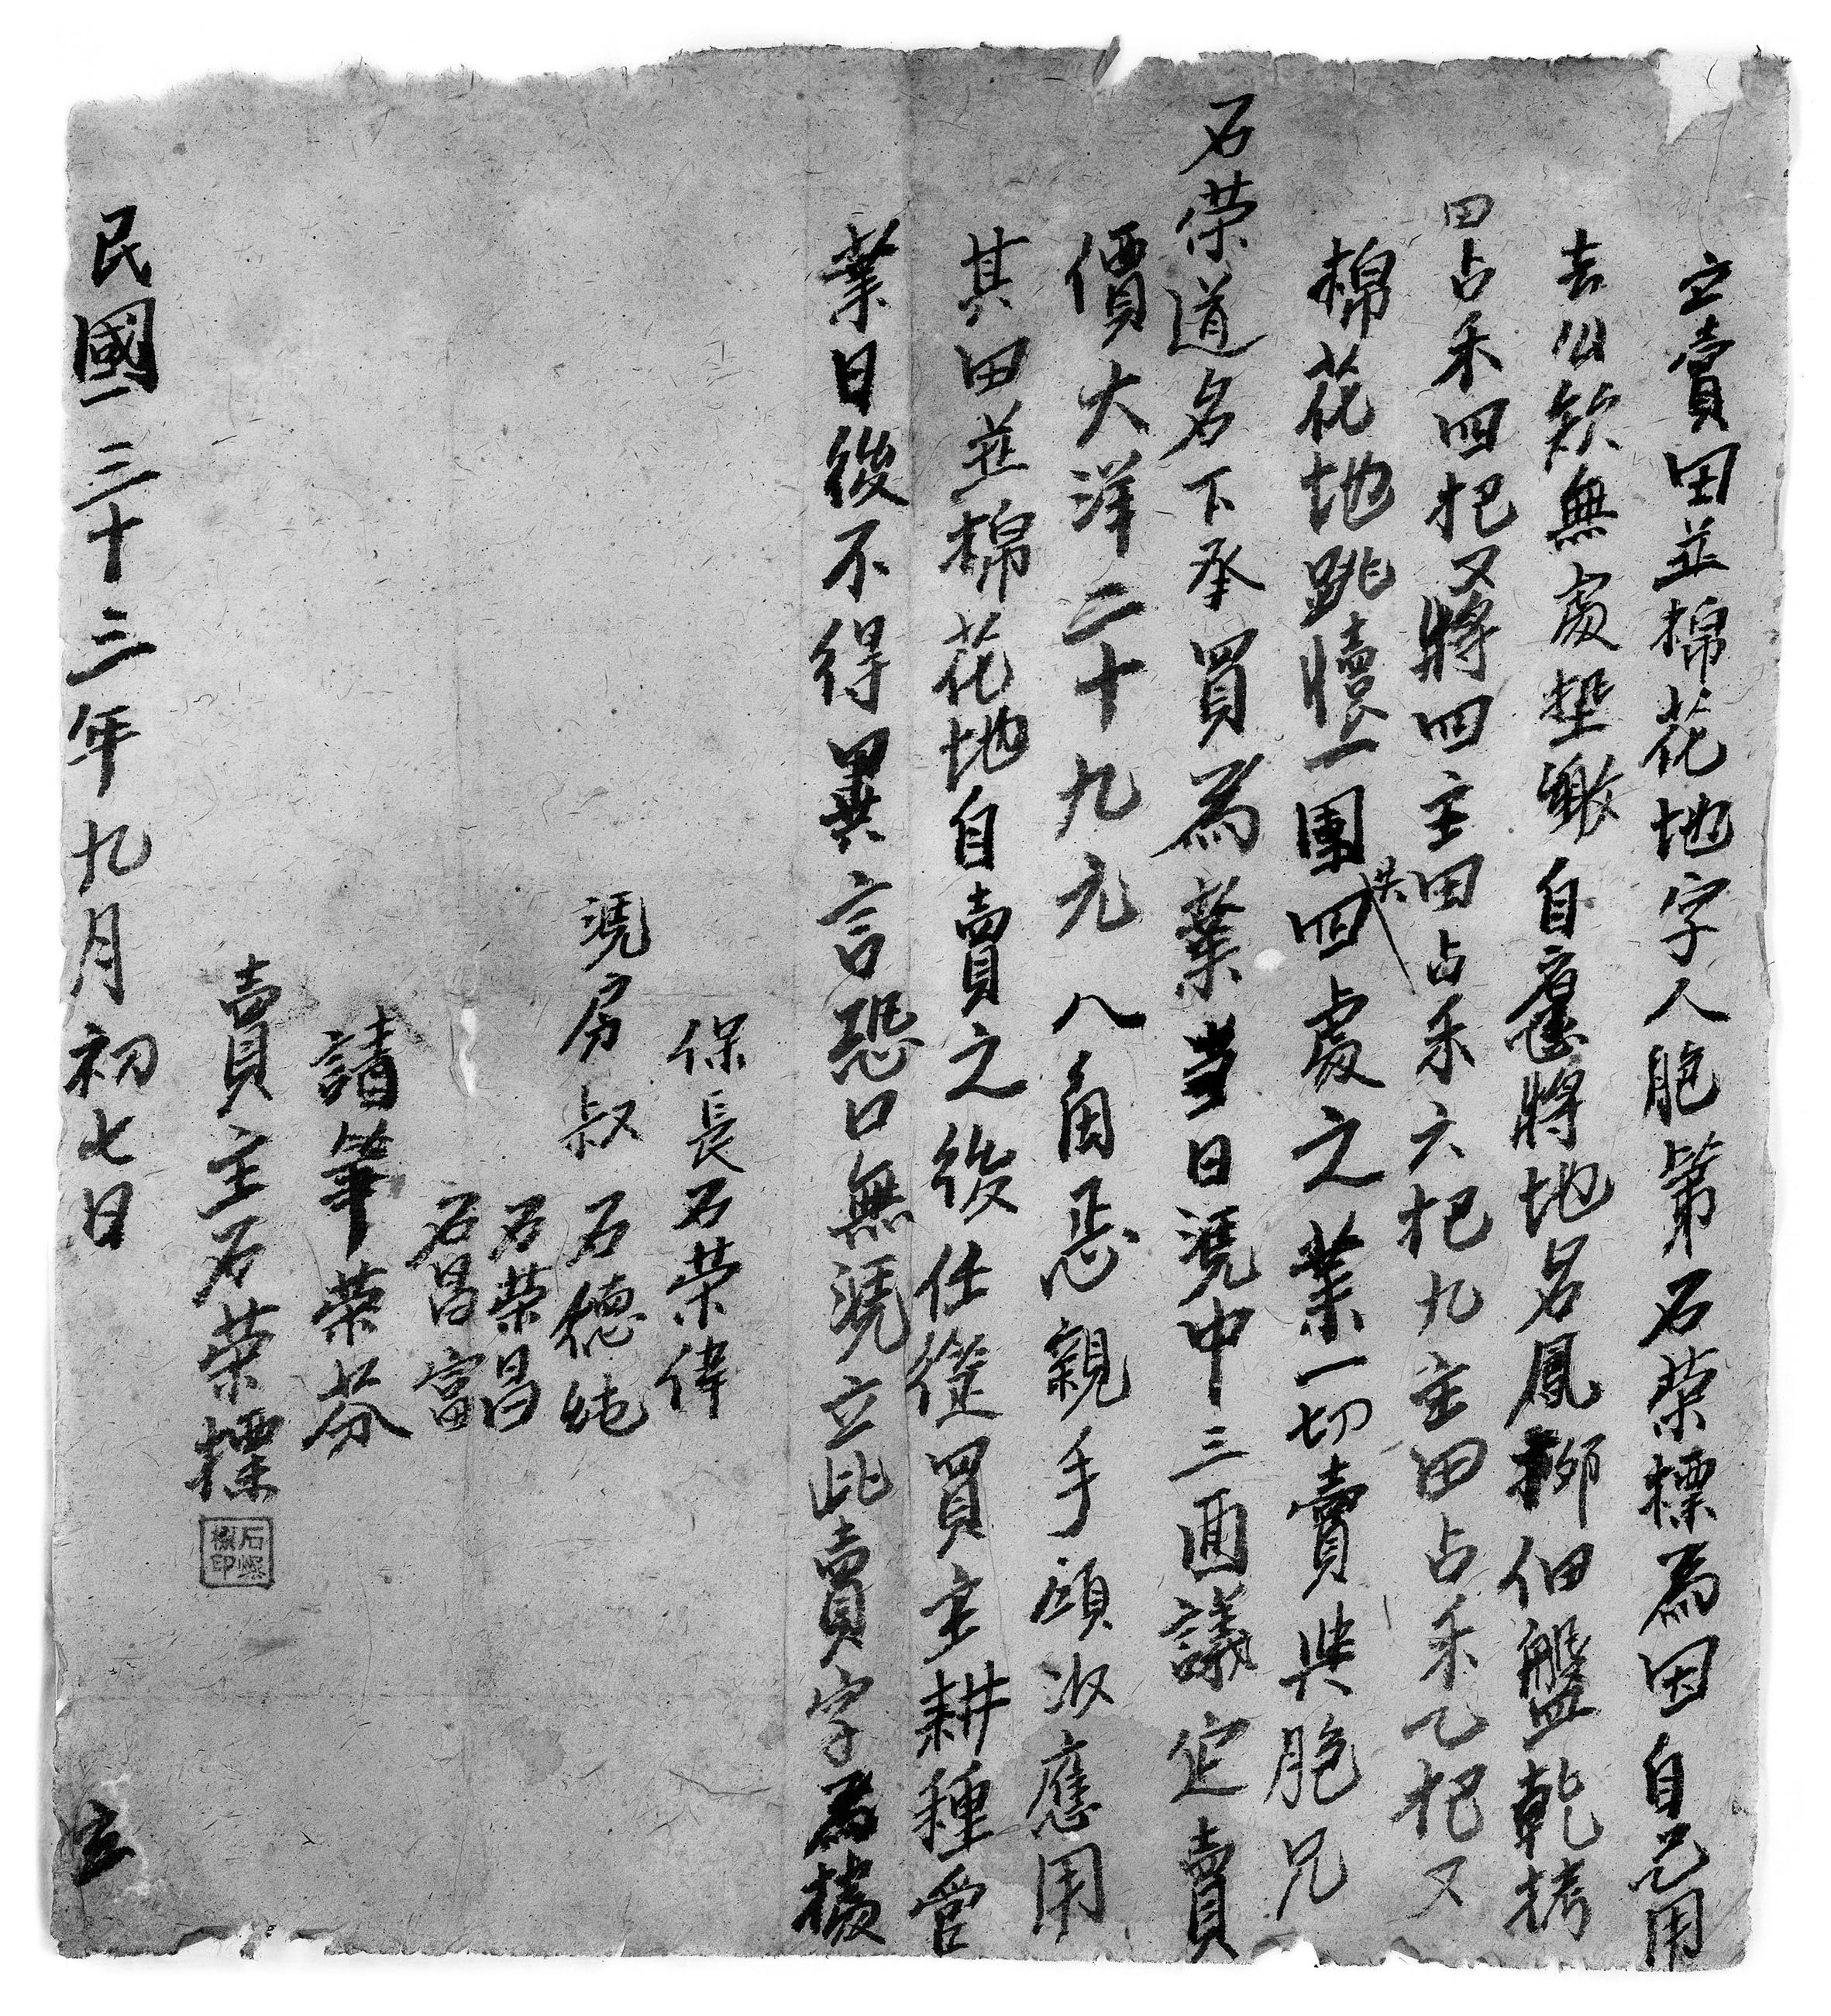 立賣田並棉花地字人胞第石榮標為因自己用
去公欵無處墊繳自愿將地名鳳柳佃盤乾拷
田占禾四把又將四主田占禾六把九主田占禾乙把又
棉花地跳牘上一團共四處之業一切賣與胞兄
石榮道名下承買為業当日憑中三面議定賣
價大洋二十九元八角恧親手領收應用
其田並棉花地自賣之後任從買主耕種管
業日後不得異言恐口無憑立此賣字為據
保長石榮偉
憑房叔石德純
石榮昌
石昌富
請筆榮芬
賣主石榮標
石熙標印
民國三十三年九月初七日 立